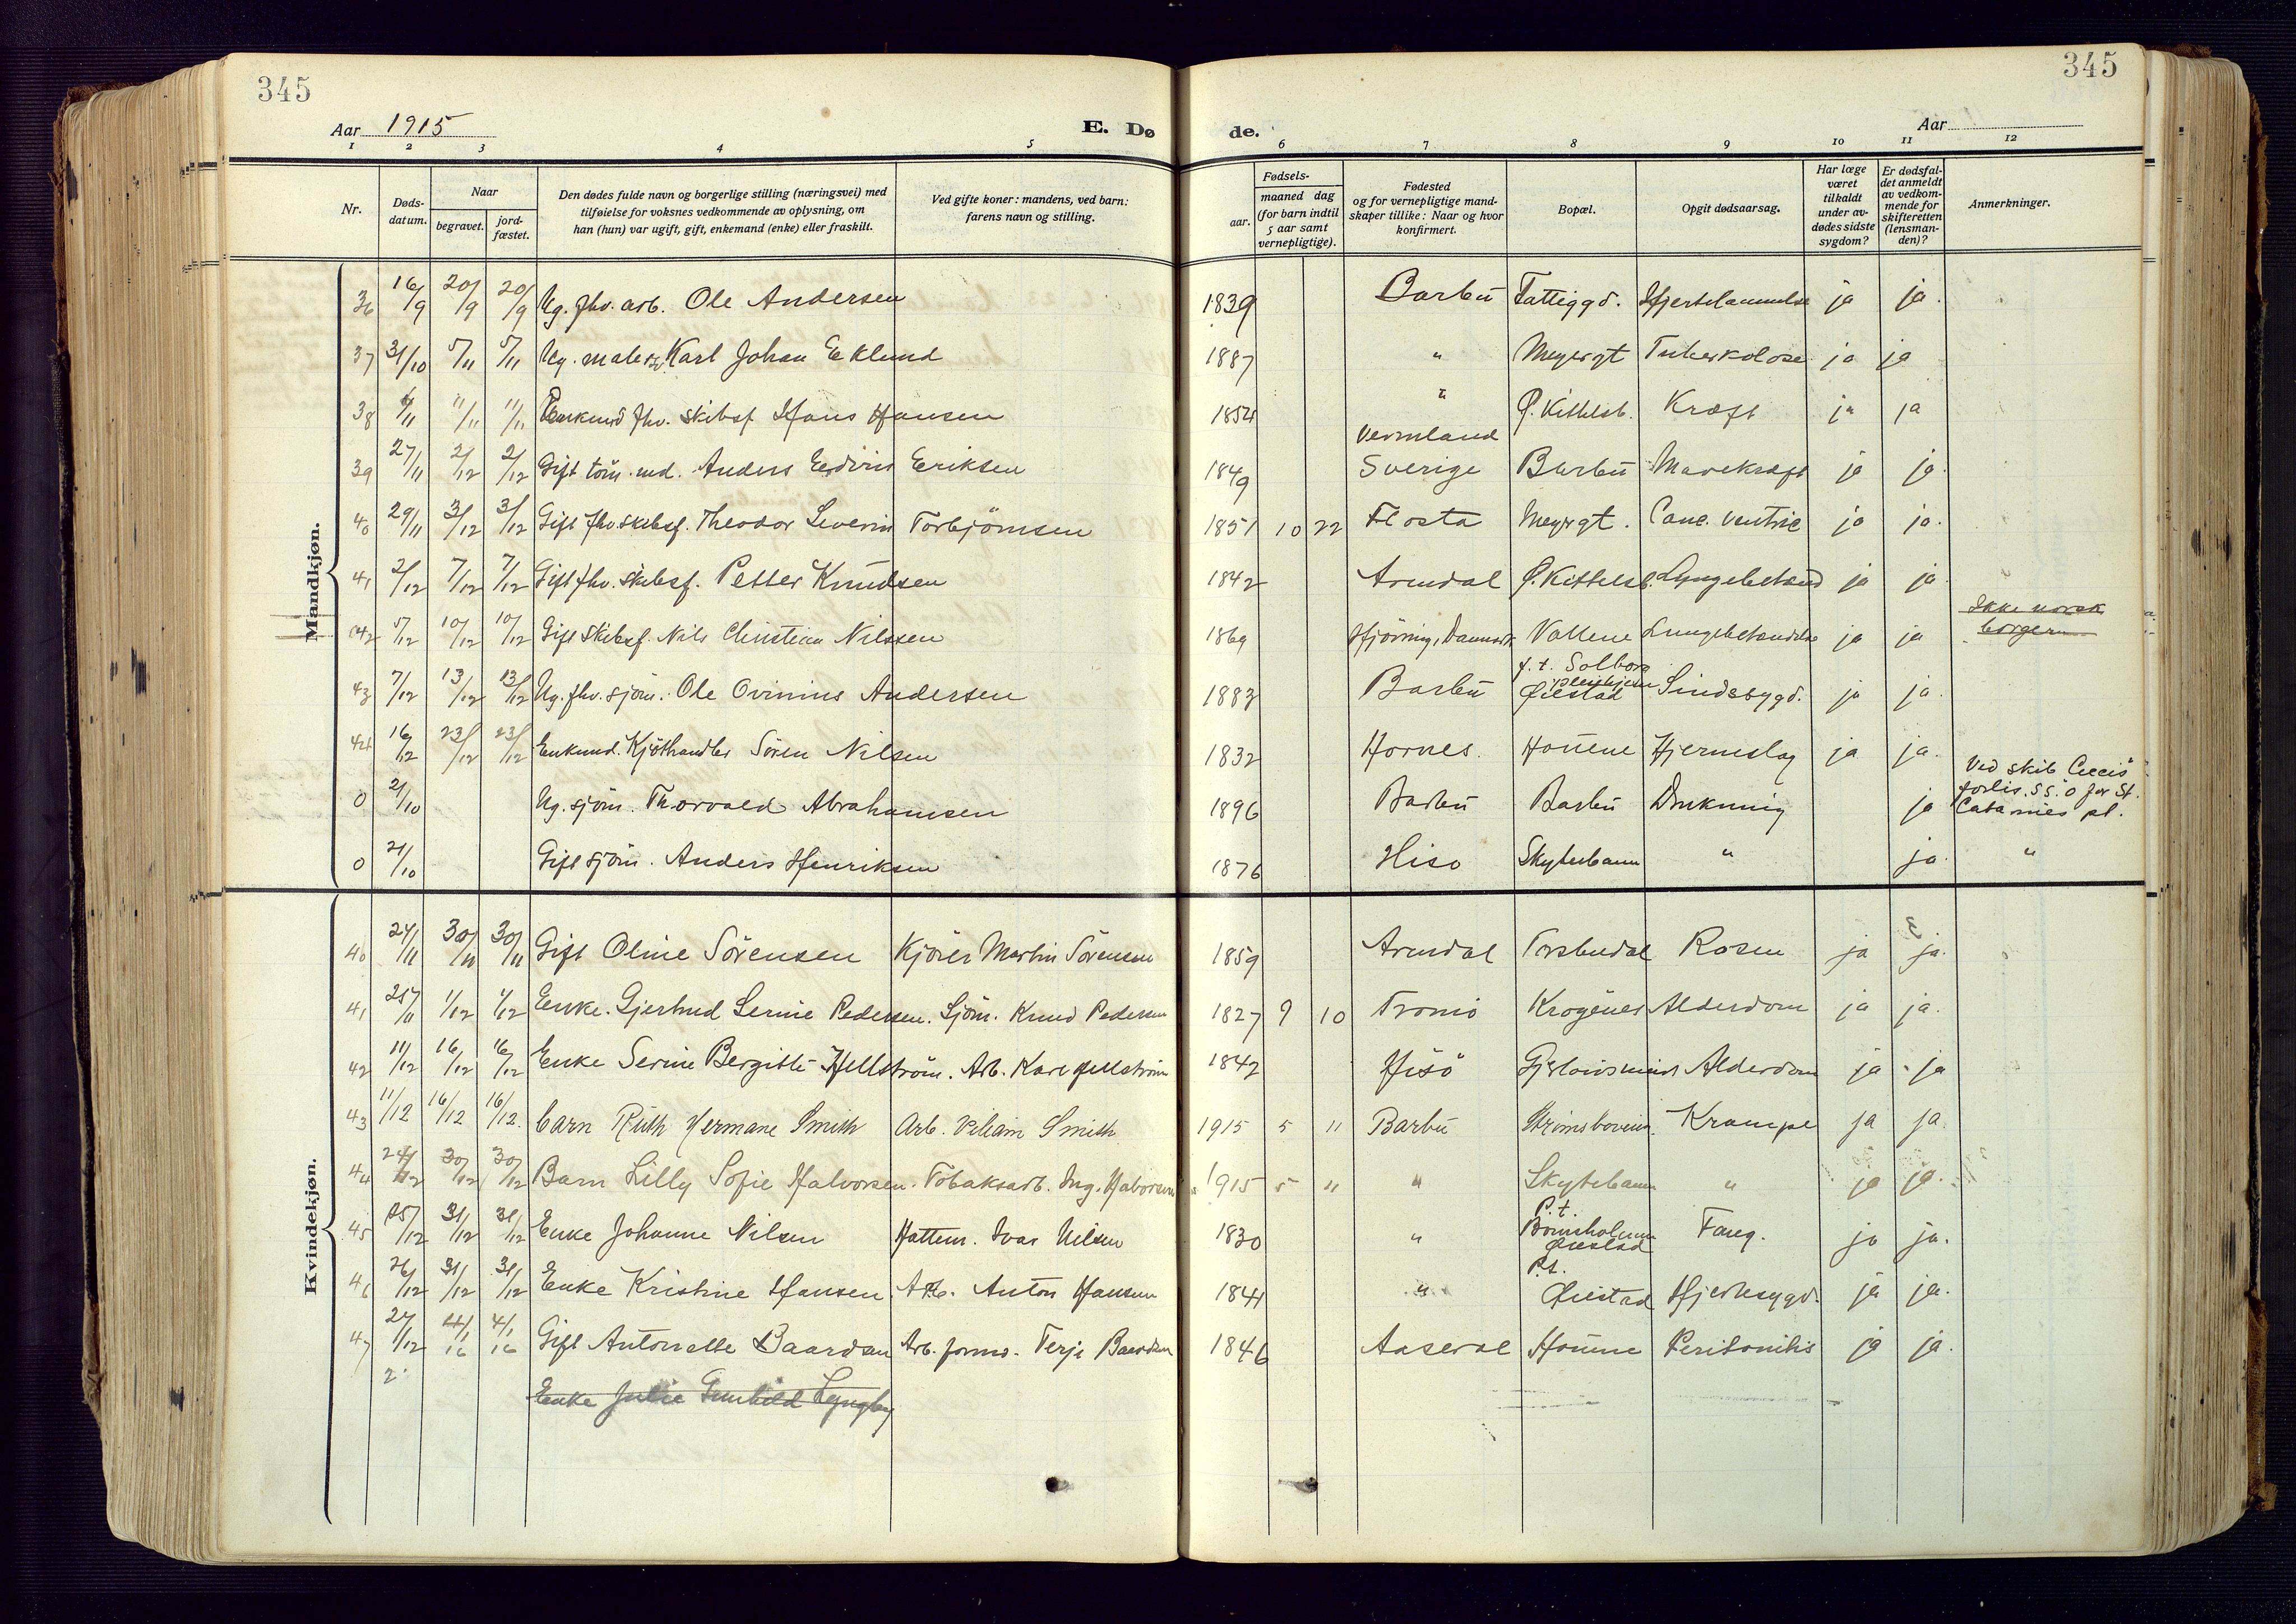 345 345
Aar 1915 E. Dø de. Aar
1 2 3 4 5 6 7 8 9 10 11 12
Nr. Døds-datum. Naar begravet. jord-fæstet. Den dødes fulde navn og borgerlige stilling (næringsvei) med tilføielse for voksnes vedkommende av oplysning, om han (hun) var ugift, gift, enkemand (enke) eller fraskilt. Ved gifte koner: mandens, ved barn: farens navn og stilling. Fødsels- aar. maaned dag (for barn indtil 5 aar samt vernepligtige). Fødested og for vernepligtige mandskaper tillike: Naar og hvor konfirmert. Bopæl. Opgit dødsaarsag. Har læge været tilkaldt under avdødes sidste sygdom? Er dødsfaldet anmeldt av vedkommende for skifteretten (lensmanden)? Anmerkninger.
Mandkjøn.
36 16/9 20/9 20/9 Ug. fhv. arb. Ole Andersen 1839 Barbu Fattiggd. Hjertelammelse ja ja.
37 31/10 5/11 5/11 Ug. malersv. Karl Johan Eklund 1887 " Meyergt Tuberkolose ja ja
38 11/11 11/11 Enkemd fhv. skibsf. Hans Hansen 1854 " Ø. Kittelsb. Kræft ja ja
39 27/11 2/12 2/12 Gift töm. md. Anders Eriksen 1849 Vermland Sverige Barbu Mavekræft ja ja.
40 29/11 3/12 3/12 Gift fhv. skibsf. Theodor Severin Torbjörnsen 1851 10 22 Flosta Meyrgt. Canc. ventric ja ja.
41 2/12 7/12 7/12 Gift fhv. skibsf. Petter Knudsen 1842 Arendal Ø. Kittelsb. Lungebetænd ja ja.
42 5/12 10/12 10/12 Gift Skibsf. Nils Christian Nilssen 1869 Hjörring, Danmark Vollene Lungebetændelse ja ja Ikke norsk borger
43 7/12 13/12 13/12 Ug. fhv. sjöm. Ole Ovinius Andersen 1883 Barbu Solborg pleiehjem Øiestad Sindssygd. ja ja.
44 16/12 23/12 23/12 Enkemd. Kjöthandler Sören Nilsen 1832 Hornes. Houene Hjerneslag ja ja.
0 2/10 Ug. sjöm. Thorvald Abrahamsen 1896 Barbu Barbu Drukning ja Ved skib forlis. S.S.O for St. Catarines pl.
0 2/10 Gift sjöm. Anders Henriksen 1876 Hisö Skytebanen " ja. "
Kvindekjøn.
40 24/11 30/11 30/11 Gift Oline Sörensen Kjörer Martin Sörensen 1859 Arendal Torsbudal Rosen ja ja.
41 1/12 1/12 Enke. Gjertrud Serine Pedersen. Sjöm. Knud Pedersen 1827 9 10 Tromö Krøgenes Alderdom ja ja.
42 11/12 16/12 16/12 Enke Serine Bergitte Hellström. Arb. Karl Hellström 1842 Hisö Alderdom ja ja
43 11/12 16/12 16/12. barn Ruth Hermane Smith Arb. Viliam Smith 1915 5 11 Barbu Krampe ja ja.
44 24/12 30/12 30/12 Barn Lilly Sofie Halvorsen. Tobaksarb. Ing. Halvorsen 1915 5 11 " Skytebanen " ja ja.
45 25/12 31/12 31/12 Enke Johanne Nilsen Hattem. Ivar Nilsen 1830 " P.t. Bomsholmen Øiestad Tæng. ja ja.
46 26/12 31/12 31/12 Enke Kristine Hansen Arb. Anton Hansen 1841 " P.t. Øiestad Hjertesygd. ja ja.
47 27/12 4/1 16 4/1 16 Gift Antonette Baardsen Arb. formd. Terje Baardsen 1846 Aaseral Houene Peritonitis ja ja.
2 Enke Julie Gunhild Lyngby